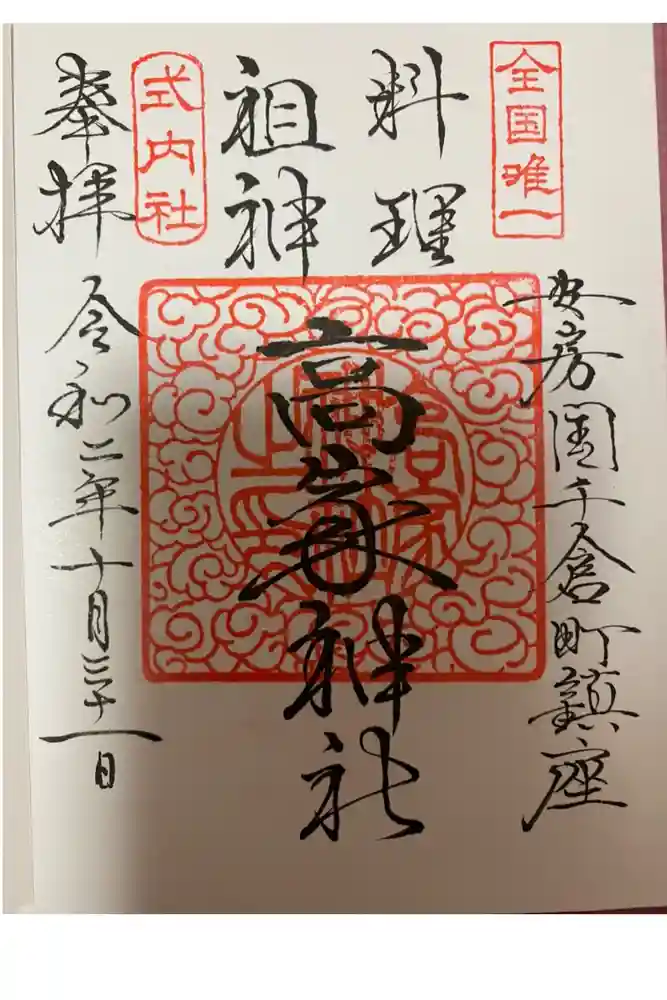 全国唯一
安房国千倉町鎮座
料理
祖神
高家神社
式内社
奉拝
令和二年十月三十一日